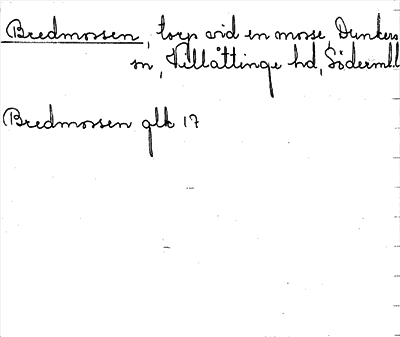 Bredmossen, torp vid en mosse Dunkers
sn, Villåttinge hd, Söderml.
Bredmossen glk 17